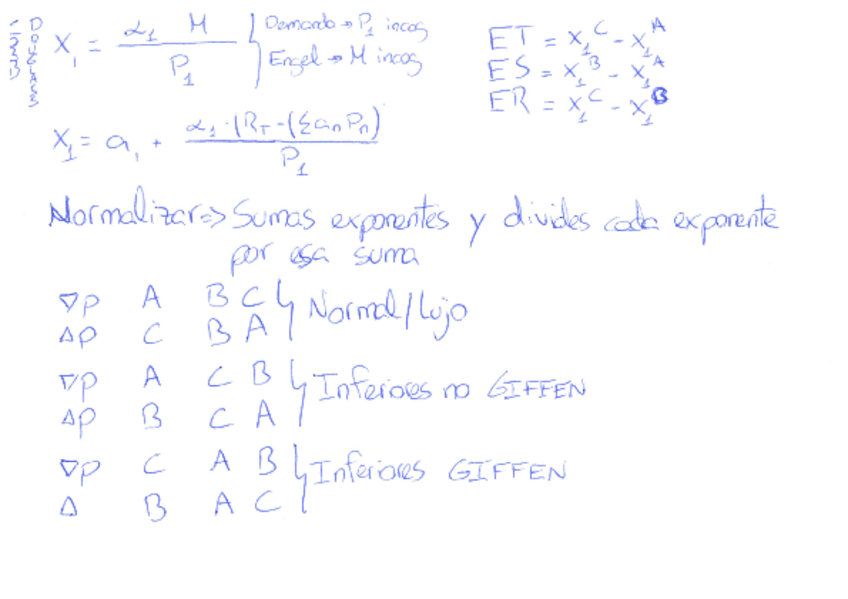 COBB DOUGLASS
X₁ = α₁ M / P₁
Demanda → P₁ incog
Engel → M incog
ET = X₁ᶜ - X₁ᴬ
ES = X₁ᴮ - X₁ᴬ
ER = X₁ᶜ - X₁ᴮ
X₁ = a₁ + α₁·(R_T - (Σ aₙ Pₙ) / P₁
Normalizar => Sumas exponentes y divides cada exponente
por esa suma
∇P A B C
ΔP C B A
Normal/Lujo
∇P A C B
ΔP B C A
Inferiores no GIFFEN
∇P C A B
Δ B A C
Inferiores GIFFEN